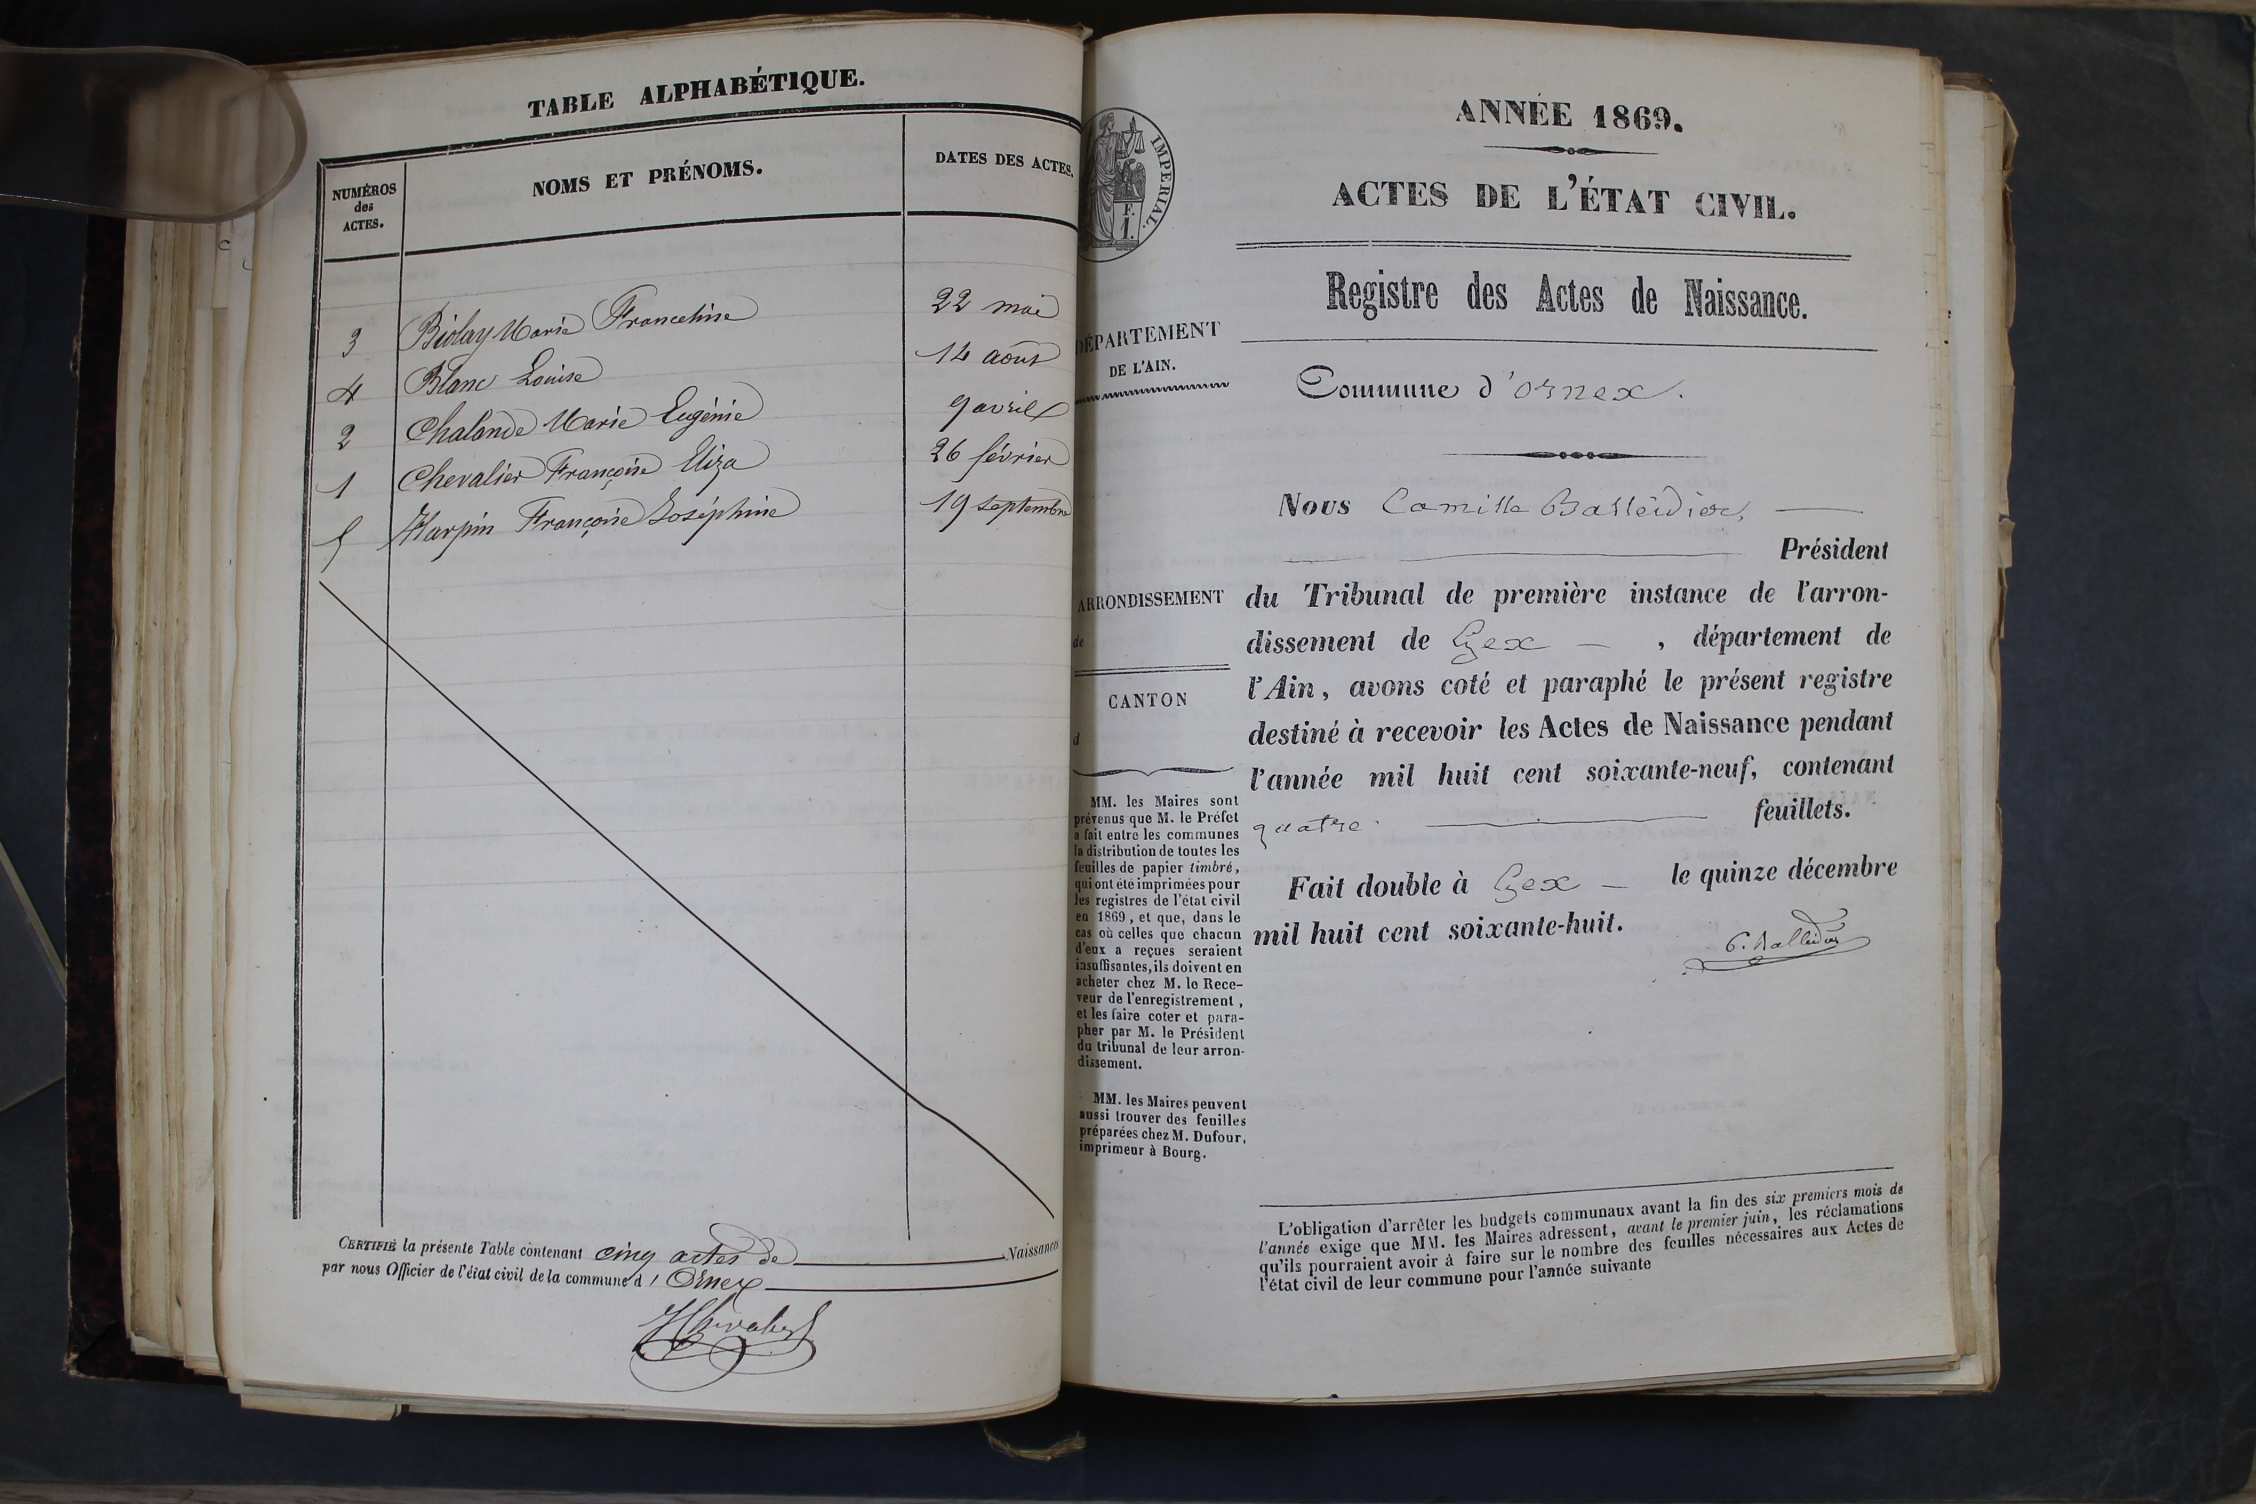 TABLE ALPHABÉTIQUE.
NUMÉROS des ACTES.
NOMS ET PRÉNOMS.
DATES DES ACTES.
3 Biolay Marie Franceline 22 mai
4 Blanc Louise 14 août
2 Chalande Marie Eugénie 9 avril
1 Chevalier Françoise Eliza 26 février
5 Harpin Françoise Joséphine 19 septembre
CERTIFIÉ la présente Table contenant cinq actes de Naissance
par nous Officier de l'état civil de la commune d' Ornex
IMPERIAL.
F.
1.
ANNÉE 1869.
ACTES DE L'ÉTAT CIVIL.
Registre des Actes de Naissance.
DÉPARTEMENT
DE L'AIN.
Commune d'Ornex.
Nous Camille Balleidier,
Président
ARRONDISSEMENT
de
CANTON
d
du Tribunal de première instance de l'arron-
dissement de Gex , département de
l'Ain, avons coté et paraphé le présent registre
destiné à recevoir les Actes de Naissance pendant
l'année mil huit cent soixante-neuf, contenant
quatre feuillets.
Fait double à Gex le quinze décembre
mil huit cent soixante-huit.
C. Balleidier
MM. les Maires sont
prévenus que M. le Préfet
a fait entre les communes
la distribution de toutes les
feuilles de papier timbré,
qui ont été imprimées pour
les registres de l'état civil
en 1869, et que, dans le
cas où celles que chacun
d'eux a reçues seraient
insuffisantes, ils doivent en
acheter chez M. le Rece-
veur de l'enregistrement,
et les faire coter et para-
pher par M. le Président
du tribunal de leur arron-
dissement.
MM. les Maires peuvent
aussi trouver des feuilles
préparées chez M. Dufour,
imprimeur à Bourg.
L'obligation d'arrêter les budgets communaux avant la fin des six premiers mois de
l'année exige que MM. les Maires adressent, avant le premier juin, les réclamations
qu'ils pourraient avoir à faire sur le nombre des feuilles nécessaires aux Actes de
l'état civil de leur commune pour l'année suivante